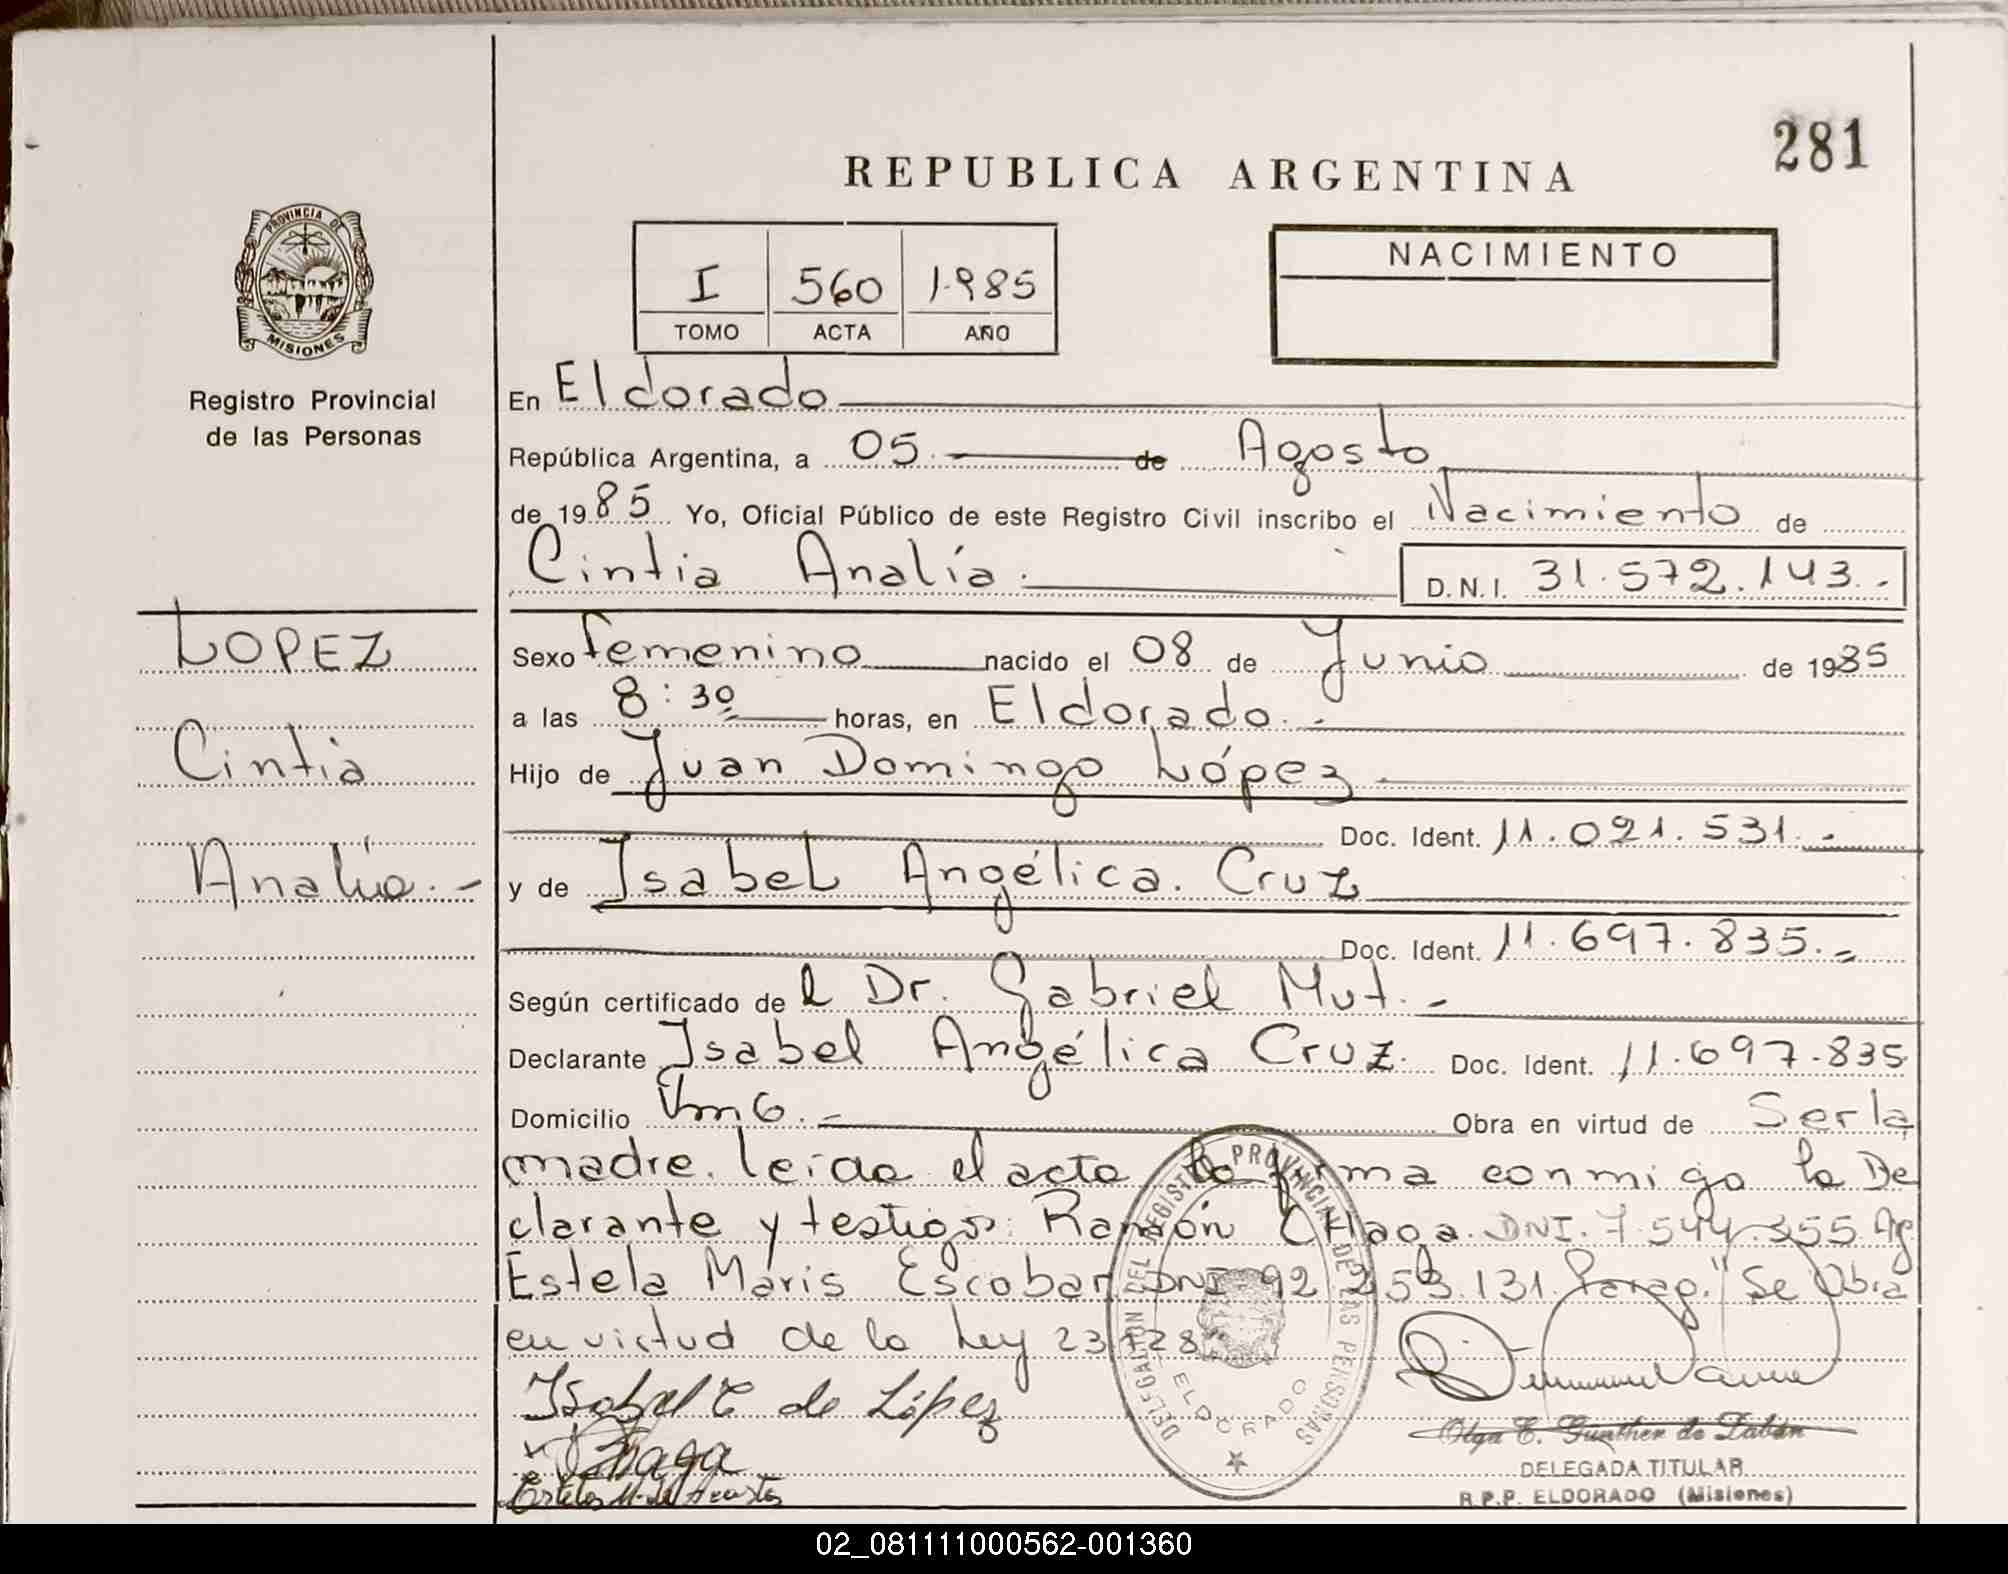 281
REPUBLICA ARGENTINA
PROVINCIA DE
MISIONES
Registro Provincial
de las Personas
I 560 1985
TOMO ACTA AÑO
NACIMIENTO
En Eldorado
República Argentina, a 05 de Agosto
de 1985 Yo, Oficial Público de este Registro Civil inscribo el Nacimiento de
Cintia Analía. D.N.I. 31.572.143.-
LOPEZ
Cintia
Analía.-
Sexo femenino nacido el 08 de Junio de 1985
a las 8:30 horas, en Eldorado.-
Hijo de Juan Domingo López
Doc. Ident. 11.021.531.-
y de Isabel Angélica. Cruz
Doc. Ident. 11.697.835.-
Según certificado del Dr. Gabriel Mut.-
Declarante Isabel Angélica Cruz. Doc. Ident. 11.697.835
Domicilio Km 6.- Obra en virtud de Ser la
madre. leída el acta la firma conmigo la De
clarante y testigos: Ramón CHaga. DNI. 7.544.355. Ag
Estela Maris Escobar DNI 92.253.131 Parag." Se Obra
en virtud de la Ley 23128"
Isabel C de López
Chaga
Estela M. de Acosta
DELEGACION DEL REGISTRO PROVINCIAL DE LAS PERSONAS
ELDORADO
Olga E. Gunther de Labán
DELEGADA TITULAR
R.P.P. ELDORADO (Misiones)
02_081111000562-001360